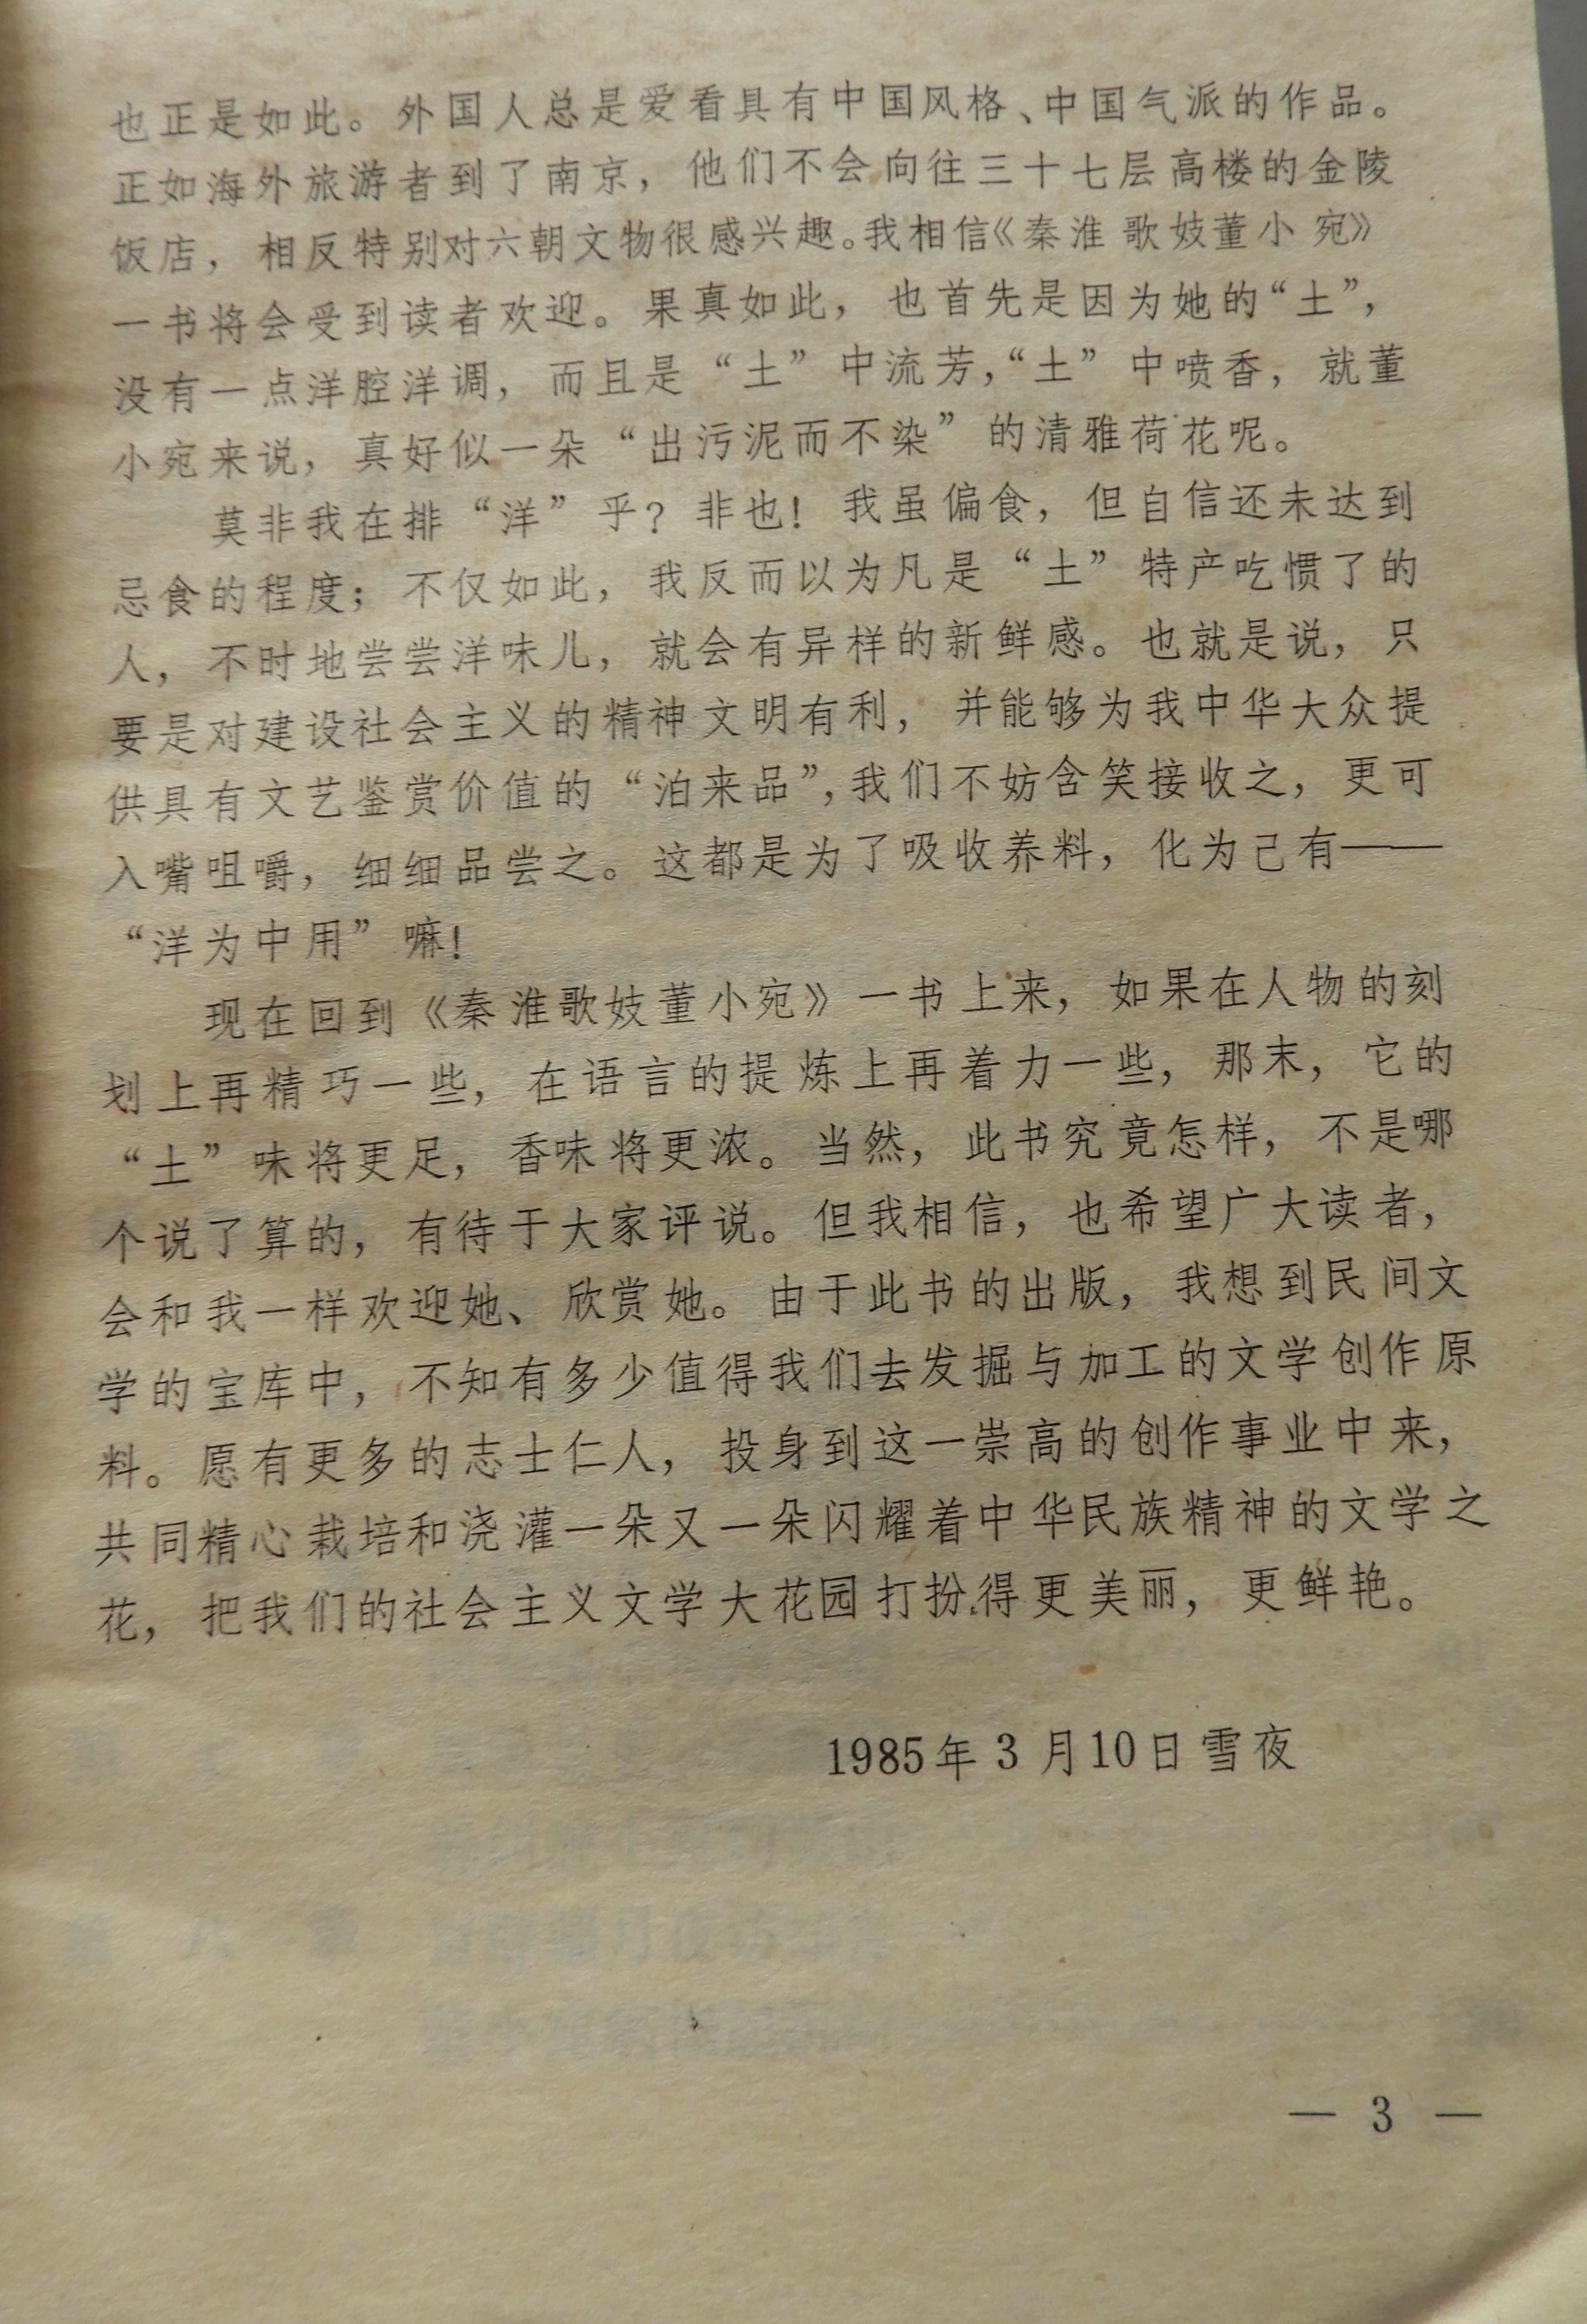 也正是如此。外国人总是爱看具有中国风格、中国气派的作品。
正如海外旅游者到了南京，他们不会向往三十七层高楼的金陵
饭店，相反特别对六朝文物很感兴趣。我相信《秦淮歌妓董小宛》
一书将会受到读者欢迎。果真如此，也首先是因为她的“土”，
没有一点洋腔洋调，而且是“土”中流芳，“土”中喷香，就董
小宛来说，真好似一朵“出污泥而不染”的清雅荷花呢。
莫非我在排“洋”乎？非也！我虽偏食，但自信还未达到
忌食的程度；不仅如此，我反而以为凡是“土”特产吃惯了的
人，不时地尝尝洋味儿，就会有异样的新鲜感。也就是说，只
要是对建设社会主义的精神文明有利，并能够为我中华大众提
供具有文艺鉴赏价值的“泊来品”，我们不妨含笑接收之，更可
入嘴咀嚼，细细品尝之。这都是为了吸收养料，化为己有——
“洋为中用”嘛！
现在回到《秦淮歌妓董小宛》一书上来，如果在人物的刻
划上再精巧一些，在语言的提炼上再着力一些，那末，它的
“土”味将更足，香味将更浓。当然，此书究竟怎样，不是哪
个说了算的，有待于大家评说。但我相信，也希望广大读者，
会和我一样欢迎她、欣赏她。由于此书的出版，我想到民间文
学的宝库中，不知有多少值得我们去发掘与加工的文学创作原
料。愿有更多的志士仁人，投身到这一崇高的创作事业中来，
共同精心栽培和浇灌一朵又一朵闪耀着中华民族精神的文学之
花，把我们的社会主义文学大花园打扮得更美丽，更鲜艳。
1985年3月10日雪夜
— 3 —